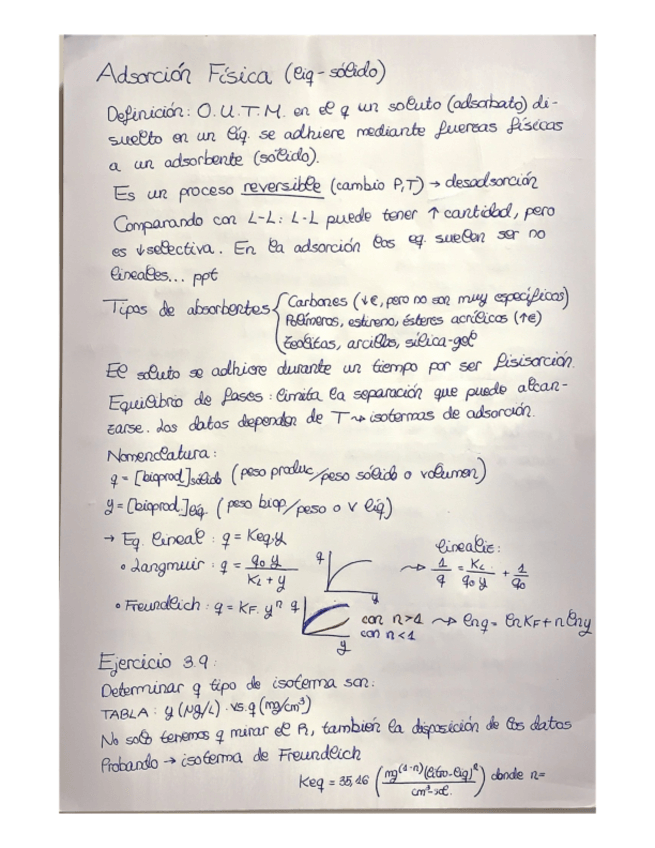 Adsorción Física (liq-sólido)
Definición: O.U.T.M. en el q un soluto (adsorbato) di-
suelto en un líq. se adhiere mediante fuerzas físicas
a un adsorbente (sólido).
Es un proceso reversible (cambio P,T) → desadsorción
Comparando con L-L: L-L puede tener ↑ cantidad, pero
es ↓ selectiva. En la adsorción las eq. suelen ser no
lineales... ppt
Tipos de absorbentes { Carbones (↓€, pero no son muy específicos)
Polímeros, estireno, ésteres acrílicos (↑€)
Zeolitas, arcillas, sílica-gel
El soluto se adhiere durante un tiempo por ser fisisorción.
Equilibrio de fases: limita la separación que puede alcan-
zarse. Los datos dependen de T ⇝ isotermas de adsorción.
Nomenclatura:
q = [bioprod]sólido (peso produc/peso sólido o volumen)
y = [bioprod.]líq. (peso biop/peso o V líq)
→ Eq. lineal: q = Keq.y
• Langmuir: q = q₀ y / (K_L + y) q y ⇝ linealiz: 1/q = K_L / (q₀ y) + 1/q₀
• Freundlich: q = K_F. yⁿ q y con n>1 ⇝ lnq = lnK_F + n lny
con n<1
Ejercicio 3.9:
Determinar q tipo de isoterma son:
TABLA: y (µg/L) vs. q (mg/cm³)
No solo tenemos q mirar el R, también la disposición de los datos
Probando → isoterma de Freundlich
Keq = 35,46 donde n=